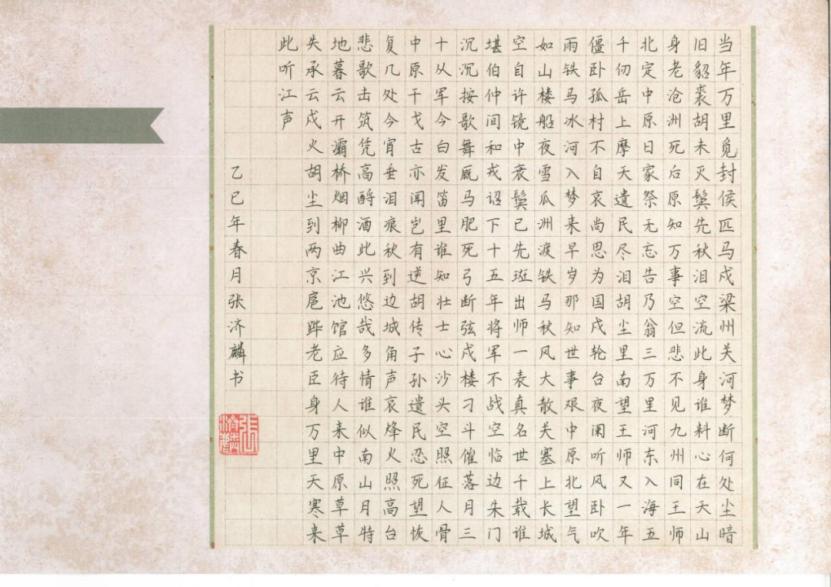 当年万里觅封侯匹马戍梁州关河梦断何处尘暗
旧貂裘胡未灭鬓先秋泪空流此身谁料心在天山
身老沧洲死后原知万事空但悲不见九州同王师
北定中原日家祭无忘告乃翁三万里河东入海五
千仞岳上摩天遗民尽泪胡尘里南望王师又一年
僵卧孤村不自哀尚思为国戍轮台夜阑听风卧吹
雨铁马冰河入梦来早岁那知世事艰中原北望气
如山楼船夜雪瓜洲渡铁马秋风大散关塞上长城
空自许镜中衰鬓已先斑出师一表真名世千载谁
堪伯仲间和戎诏下十五年将军不战空临边朱门
沉沉按歌舞厩马肥死弓断弦戍楼刁斗催落月三
十从军今白发笛里谁知壮士心沙头空照征人骨
中原干戈古亦闻岂有逆胡传子孙遗民忍死望恢
复几处今宵垂泪痕秋到边城角声哀烽火照高台
悲歌击筑凭高酹酒此兴悠哉多情谁似南山月特
地暮云开灞桥烟柳曲江池馆应待人来中原草草
失承云戍火胡尘到两京扈跸老臣身万里天寒来
此听江声
乙巳年春月张济麟书